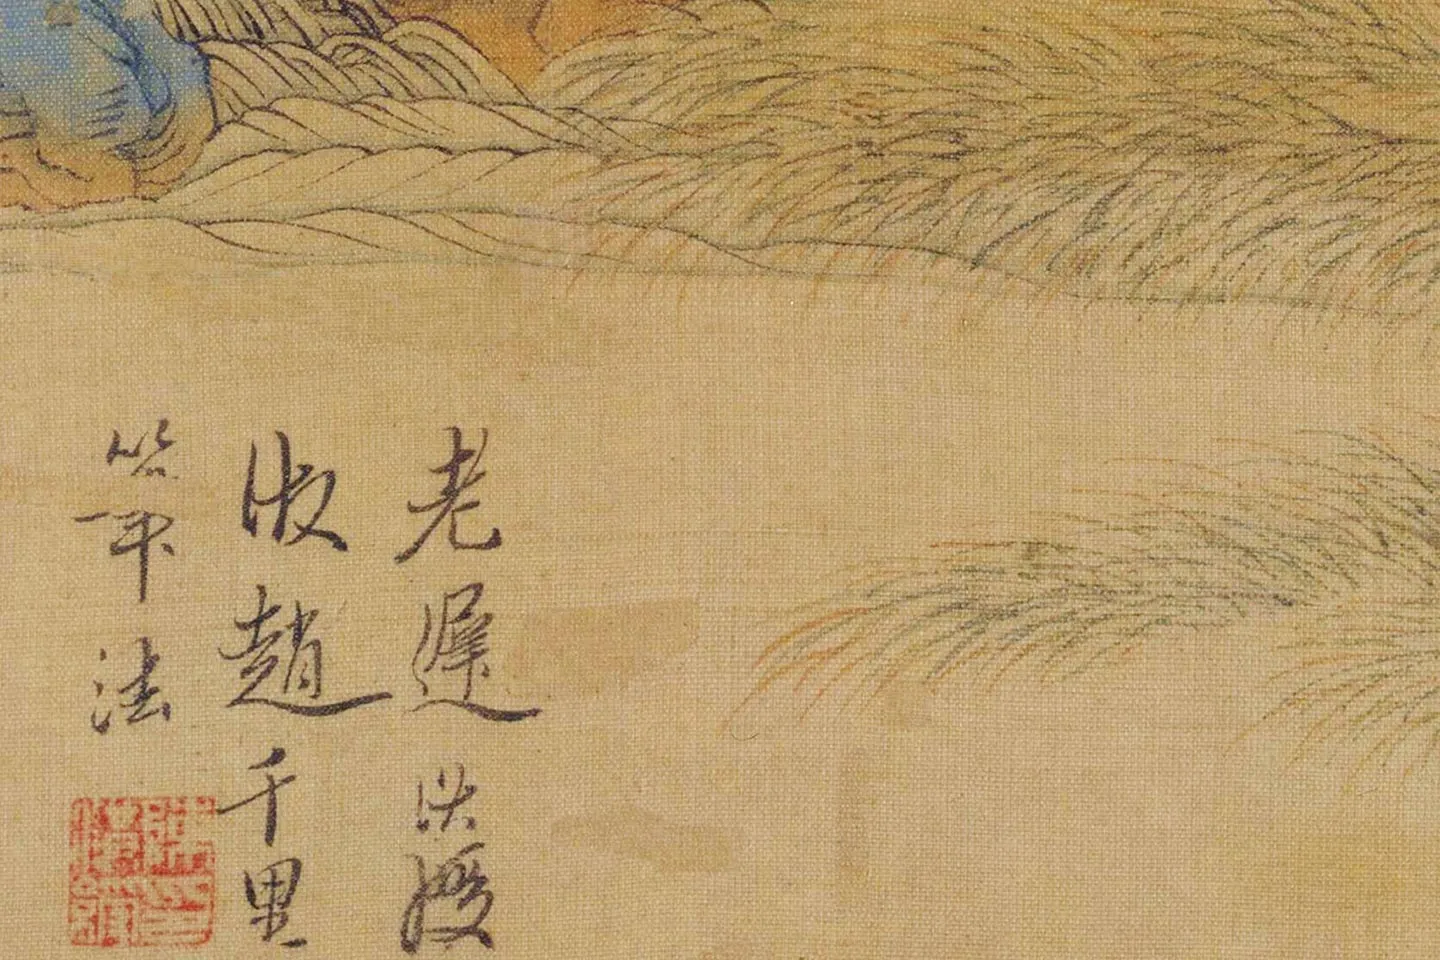 老遲洪綬
倣趙千里
筆法